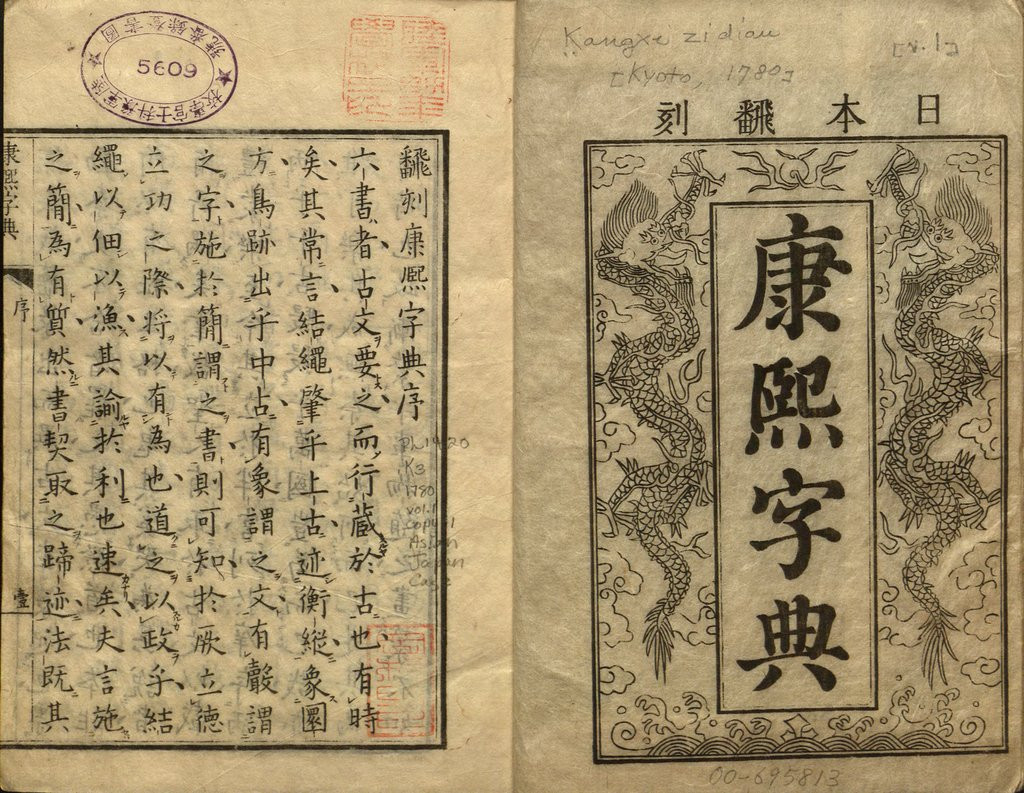 Kangxe zidian [v.1]
[Kyoto, 1780]
日本翻刻
康熙字典
00-695813
5609
飜刻康熙字典序
六書者古文要之而行藏於古也有時
矣其常言結繩肇乎上古迹衡縱象圜
方鳥跡出乎中古有象謂之文有聲謂
之字施於簡謂之書則可知於厥立德
立功之際將以有為也道之以政乎結
繩以佃以漁其諭於利也速矣夫言施
之簡為有質然書契取之蹄迹法既其
PL1420
K3
1780
vol.1
copy 1
Asian
Japan
Case
康熙字典
序
壹